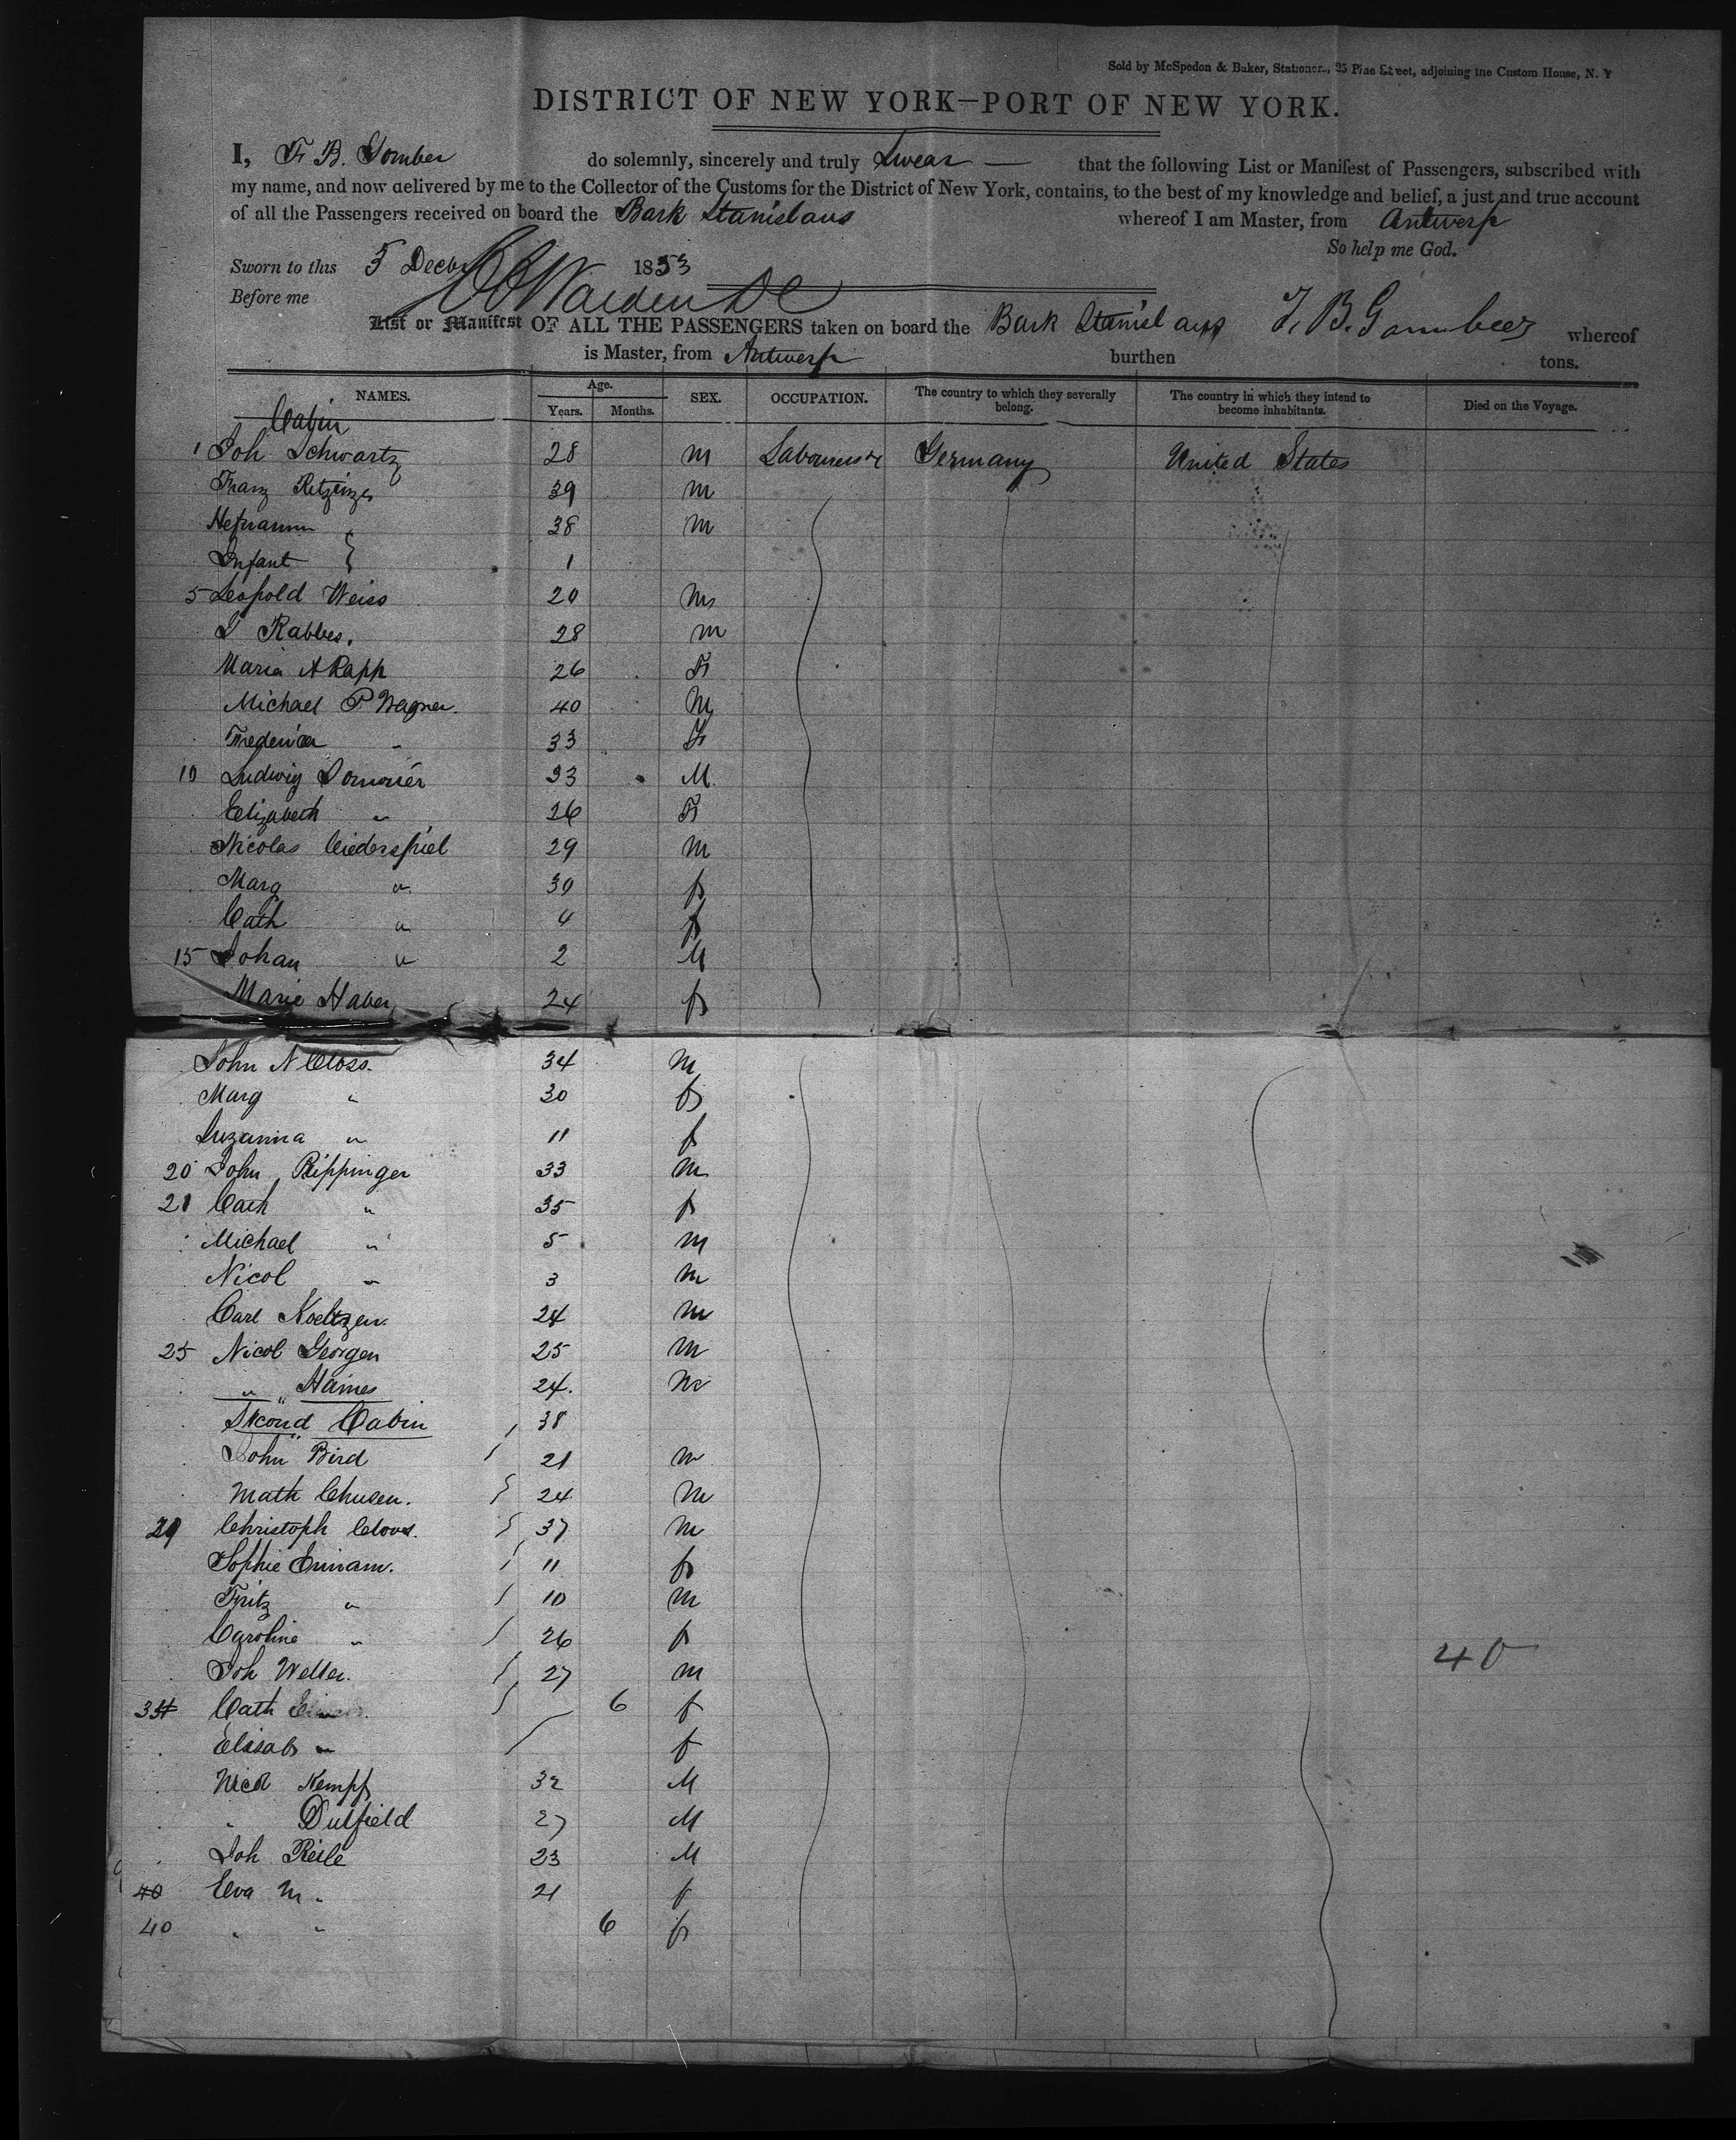 Sold by McSpedon & Baker, Stationers, 25 Pine Street, adjoining the Custom House, N. Y
DISTRICT OF NEW YORK—PORT OF NEW YORK.
I, F. B. do solemnly, sincerely and truly Swear — that the following List or Manifest of Passengers, subscribed with
my name, and now delivered by me to the Collector of the Customs for the District of New York, contains, to the best of my knowledge and belief, a just and true account
of all the Passengers received on board the Bark Stanislaus whereof I am Master, from Antwerp
So help me God.
Sworn to this 5 Decbr 1853
Before me
List or Manifest OF ALL THE PASSENGERS taken on board the Bark Stanislaus F. B. whereof
is Master, from Antwerp burthen tons.
NAMES. Age. Years. Months. SEX. OCCUPATION. The country to which they severally belong. The country in which they intend to become inhabitants. Died on the Voyage.
Cabin
1 Joh Schwartz 28 m Germany United States
Franz 39 m
38 m
Infant 1
5 Leopold Weiss 20 m
28 m
Maria A Rapp 26 F
Michael P Wagner. 40 M
Frederica " 33 F
10 Ludwig 33 M
Elizabeth " 26 F
Nicolas 29 m
Marg " 30 f
Cath " 4 f
15 Johan " 2 M
Marie Haber 24 f
John N Closs. 34 m
Marg " 30 f
Suzanna " 11 f
20 John Rippinger 33 m
21 Cath " 35 f
Michael " 5 m
Nicol " 3 m
Carl 24 m
25 Nicol Georgen 25 m
" " Haines 24. m
Second Cabin 38
John Bird 21 m
Math 24 m
29 Christoph 37 m
Sophie 11 f
Fritz " 10 m
Caroline " 26 f
Joh Weller. 27 m
40
Cath 6 f
Elisab " f
Nicol Kempf 32 M
" Dutfield 27 M
Joh Reile 23 M
40 Eva M " 21 f
40 " " 6 f